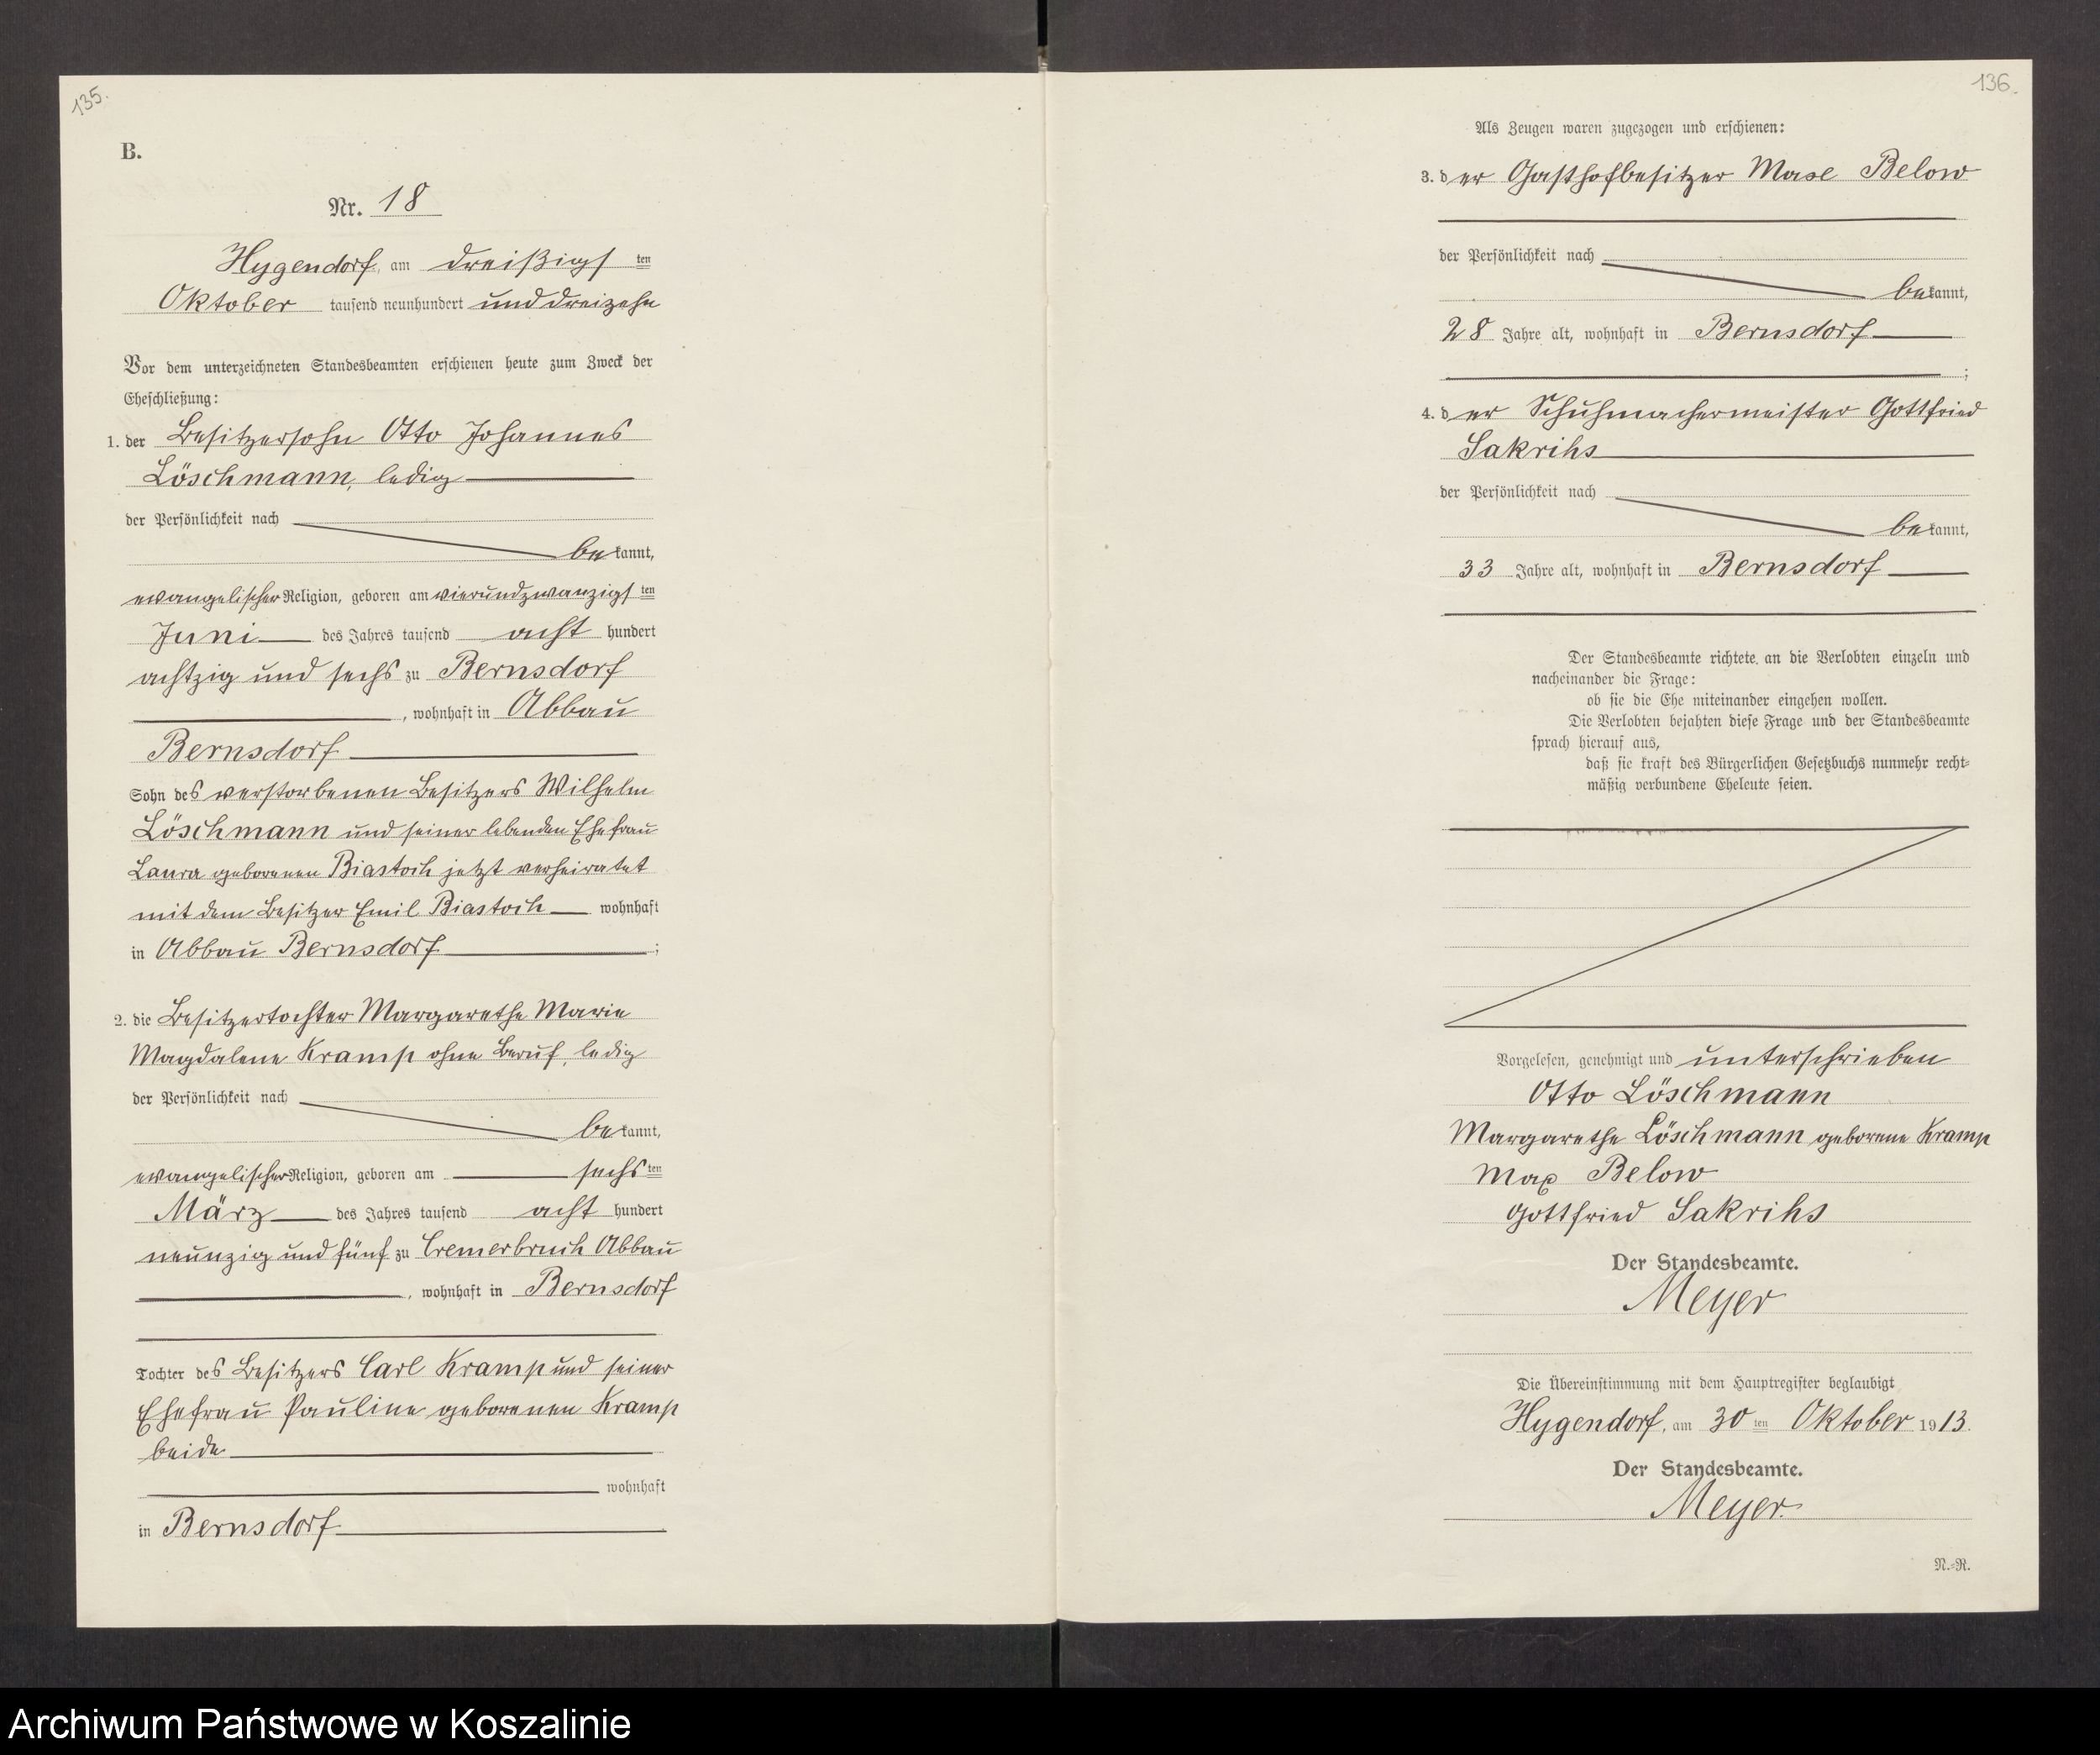 135.
B.
Nr. 18
Hygendorf, am dreißigsten
Oktober tausend neunhundert und dreizehn
Vor dem unterzeichneten Standesbeamten erschienen heute zum Zweck der
Eheschließung:
1. der Besitzersohn Otto Johannes
Löschmann, ledig
der Persönlichkeit nach
bekannt,
evangelischer Religion, geboren am vierundzwanzigsten
Juni des Jahres tausend acht hundert
achtzig und sechs zu Bernsdorf
, wohnhaft in Abbau
Bernsdorf
Sohn des verstorbenen Besitzers Wilhelm
Löschmann und seiner lebenden Ehefrau
Laura geborenen Biastoch jetzt verheiratet
mit dem Besitzer Emil Biastoch wohnhaft
in Abbau Bernsdorf ;
2. die Besitzertochter Margarethe Marie
Magdalene Kramp ohne Beruf, ledig
der Persönlichkeit nach
bekannt,
evangelischer Religion, geboren am sechsten
März des Jahres tausend acht hundert
neunzig und fünf zu Cremerbruch Abbau
, wohnhaft in Bernsdorf
Tochter des Besitzers Carl Kramp und seiner
Ehefrau Pauline geborenen Kramp
beide
wohnhaft
in Bernsdorf
136.
Als Zeugen waren zugezogen und erschienen:
3. der Gasthofbesitzer Max Below
der Persönlichkeit nach
bekannt,
28 Jahre alt, wohnhaft in Bernsdorf
;
4. der Schuhmachermeister Gottfried
Sakrihs
der Persönlichkeit nach
bekannt,
33 Jahre alt, wohnhaft in Bernsdorf
Der Standesbeamte richtete an die Verlobten einzeln und
nacheinander die Frage:
ob sie die Ehe miteinander eingehen wollen.
Die Verlobten bejahten diese Frage und der Standesbeamte
sprach hierauf aus,
daß sie kraft des Bürgerlichen Gesetzbuchs nunmehr recht-
mäßig verbundene Eheleute seien.
Vorgelesen, genehmigt und unterschrieben
Otto Löschmann
Margarethe Löschmann geborene Kramp
Max Below
Gottfried Sakrihs
Der Standesbeamte.
Meyer
Die Übereinstimmung mit dem Hauptregister beglaubigt
Hygendorf, am 30ten Oktober 1913.
Der Standesbeamte.
Meyer.
N.-R.
Archiwum Państwowe w Koszalinie